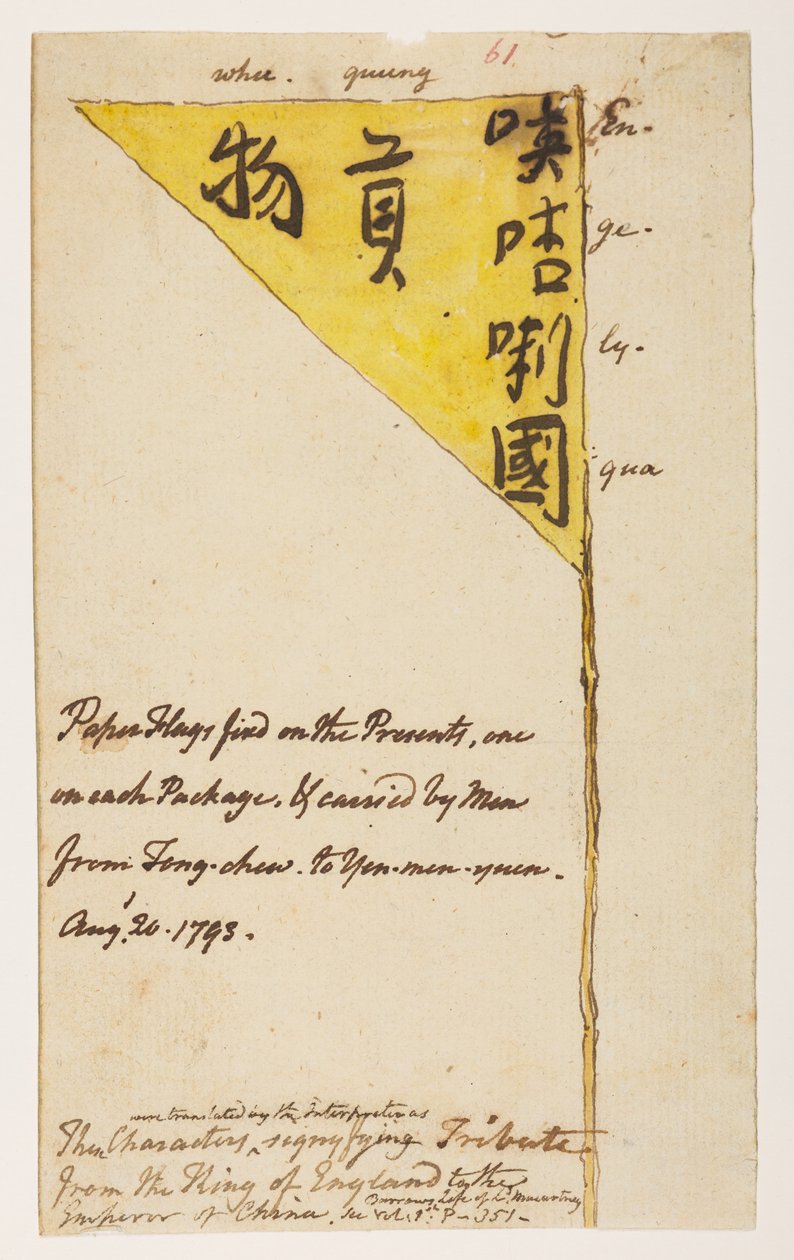 61
whee. quung
En-
ge-
ly-
qua
𠸄咭唎國
貢
物
Paper Flags fixd on the Presents, one
on each Package, & carried by Men
from Tong-chew. to Yen-men-yuen.
Augt. 20. 1793.
were translated by the Interpreter as
These Characters signifying Tribute
from the King of England to the
Emperor of China. see Barrows Life of Ld. Macartney
Vol. 1st. P- 351-